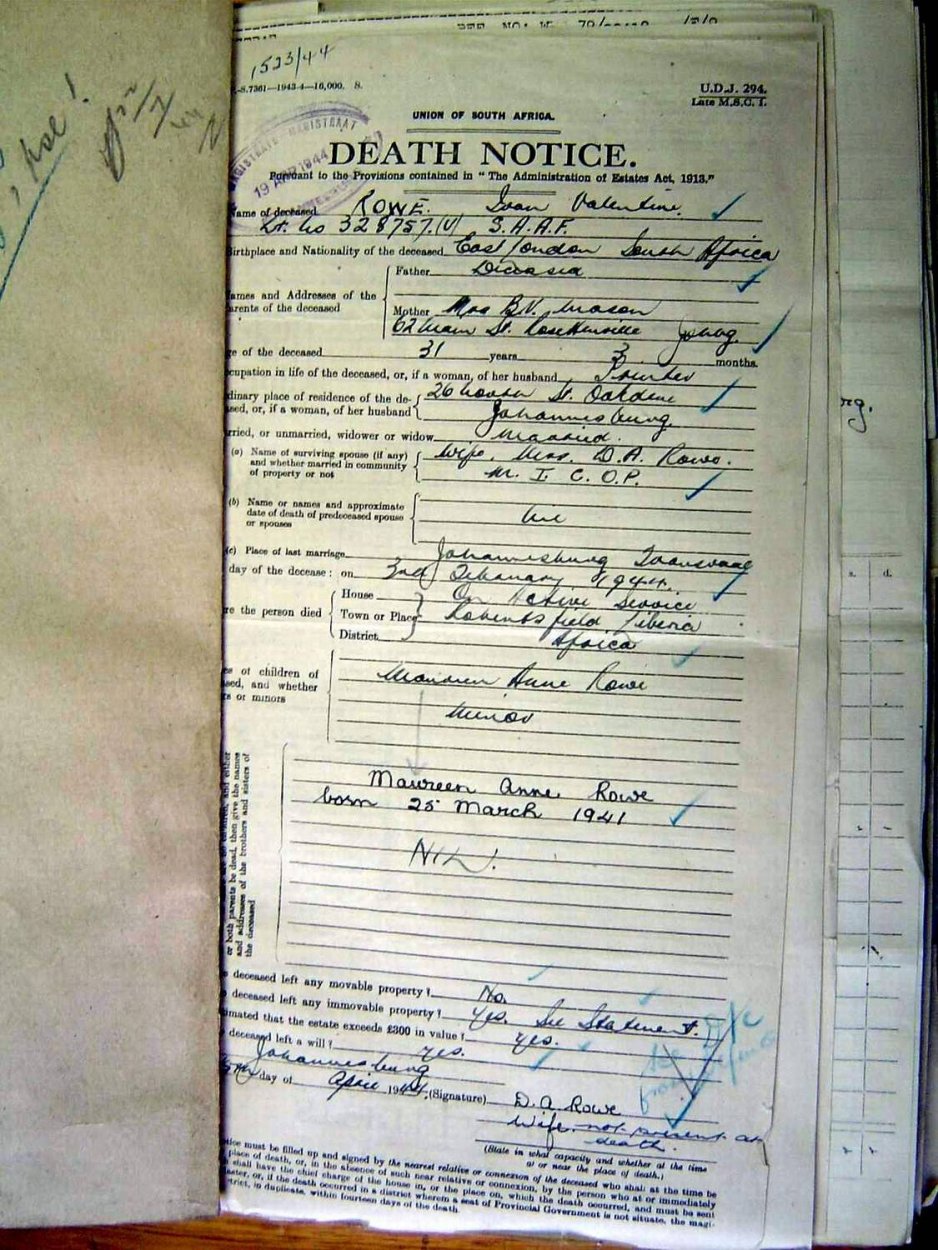 1523/44
-S.7361—1943-4—16,000. S.
U.D.J. 294.
Late M.S.C. 1.
UNION OF SOUTH AFRICA.
MAGISTRAAT
19 APR 1944
DEATH NOTICE.
Pursuant to the Provisions contained in "The Administration of Estates Act, 1913."
Name of deceased ROWE. Ivan Valentine.
Lt. No 328757.(V) S.A.A.F.
Birthplace and Nationality of the deceased East London South Africa
Father
ames and Addresses of the
arents of the deceased
Mother Mrs B.V. Mason
62 Main St. Rosettenville Jhburg.
ge of the deceased 31 years 3 months.
cupation in life of the deceased, or, if a woman, of her husband Printer
dinary place of residence of the de-
sed, or, if a woman, of her husband
26 North St. Oakdene
Johannesburg.
rried, or unmarried, widower or widow Married.
(a) Name of surviving spouse (if any)
and whether married in community
of property or not
Wife. Mrs. D.A. Rowe.
M. I C. O.P.
(b) Name or names and approximate
date of death of predeceased spouse
or spouses
(c) Place of last marriage Johannesburg Transvaal
day of the decease: on 3rd February 1944.
re the person died
House On Active Service
Town or Place Robertsfield Liberia
District Africa
es of children of
sed, and whether
rs or minors
Maureen Anne Rowe
Minor
Maureen Anne Rowe
born 25 March 1941
NIL.
or both parents be dead, then give the names
and addresses of the brothers and sisters of
the deceased
deceased left any movable property? No.
deceased left any immovable property? Yes. See Statement.
imated that the estate exceeds £300 in value? yes.
deceased left a will? yes.
Johannesburg
day of April 1944. (Signature) D.A. Rowe
Wife not present at
death.
(State in what capacity and whether at the time
at or near the place of death.)
otice must be filled up and signed by the nearest relative or connexion of the deceased who shall at the time be
place of death, or, in the absence of such near relative or connexion, by the person who at or immediately
shall have the chief charge of the house in, or the place on, which the death occurred, and must be sent
aster, or, if the death occurred in a district wherein a seat of Provincial Government is not situate, the magi-
strict, in duplicate, within fourteen days of the death.
rg.
s. d.